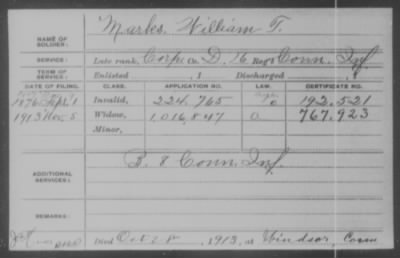 NAME OF SOLDIER: Marks, William T.
SERVICE: Late rank, Corp Co. D, 16 Reg't Conn. Inf.
TERM OF SERVICE: Enlisted , 1 Discharged , 1
DATE OF FILING. CLASS. APPLICATION NO. LAW. CERTIFICATE NO.
1876 Sept. 1 Invalid, 224,765 192.521
1913 Nov. 5 Widow, 1,016,847 O 767,923
Minor,
ADDITIONAL SERVICES: B. 8 Conn. Inf.
REMARKS:
Died Oct 18, 1913, at Windsor, Conn